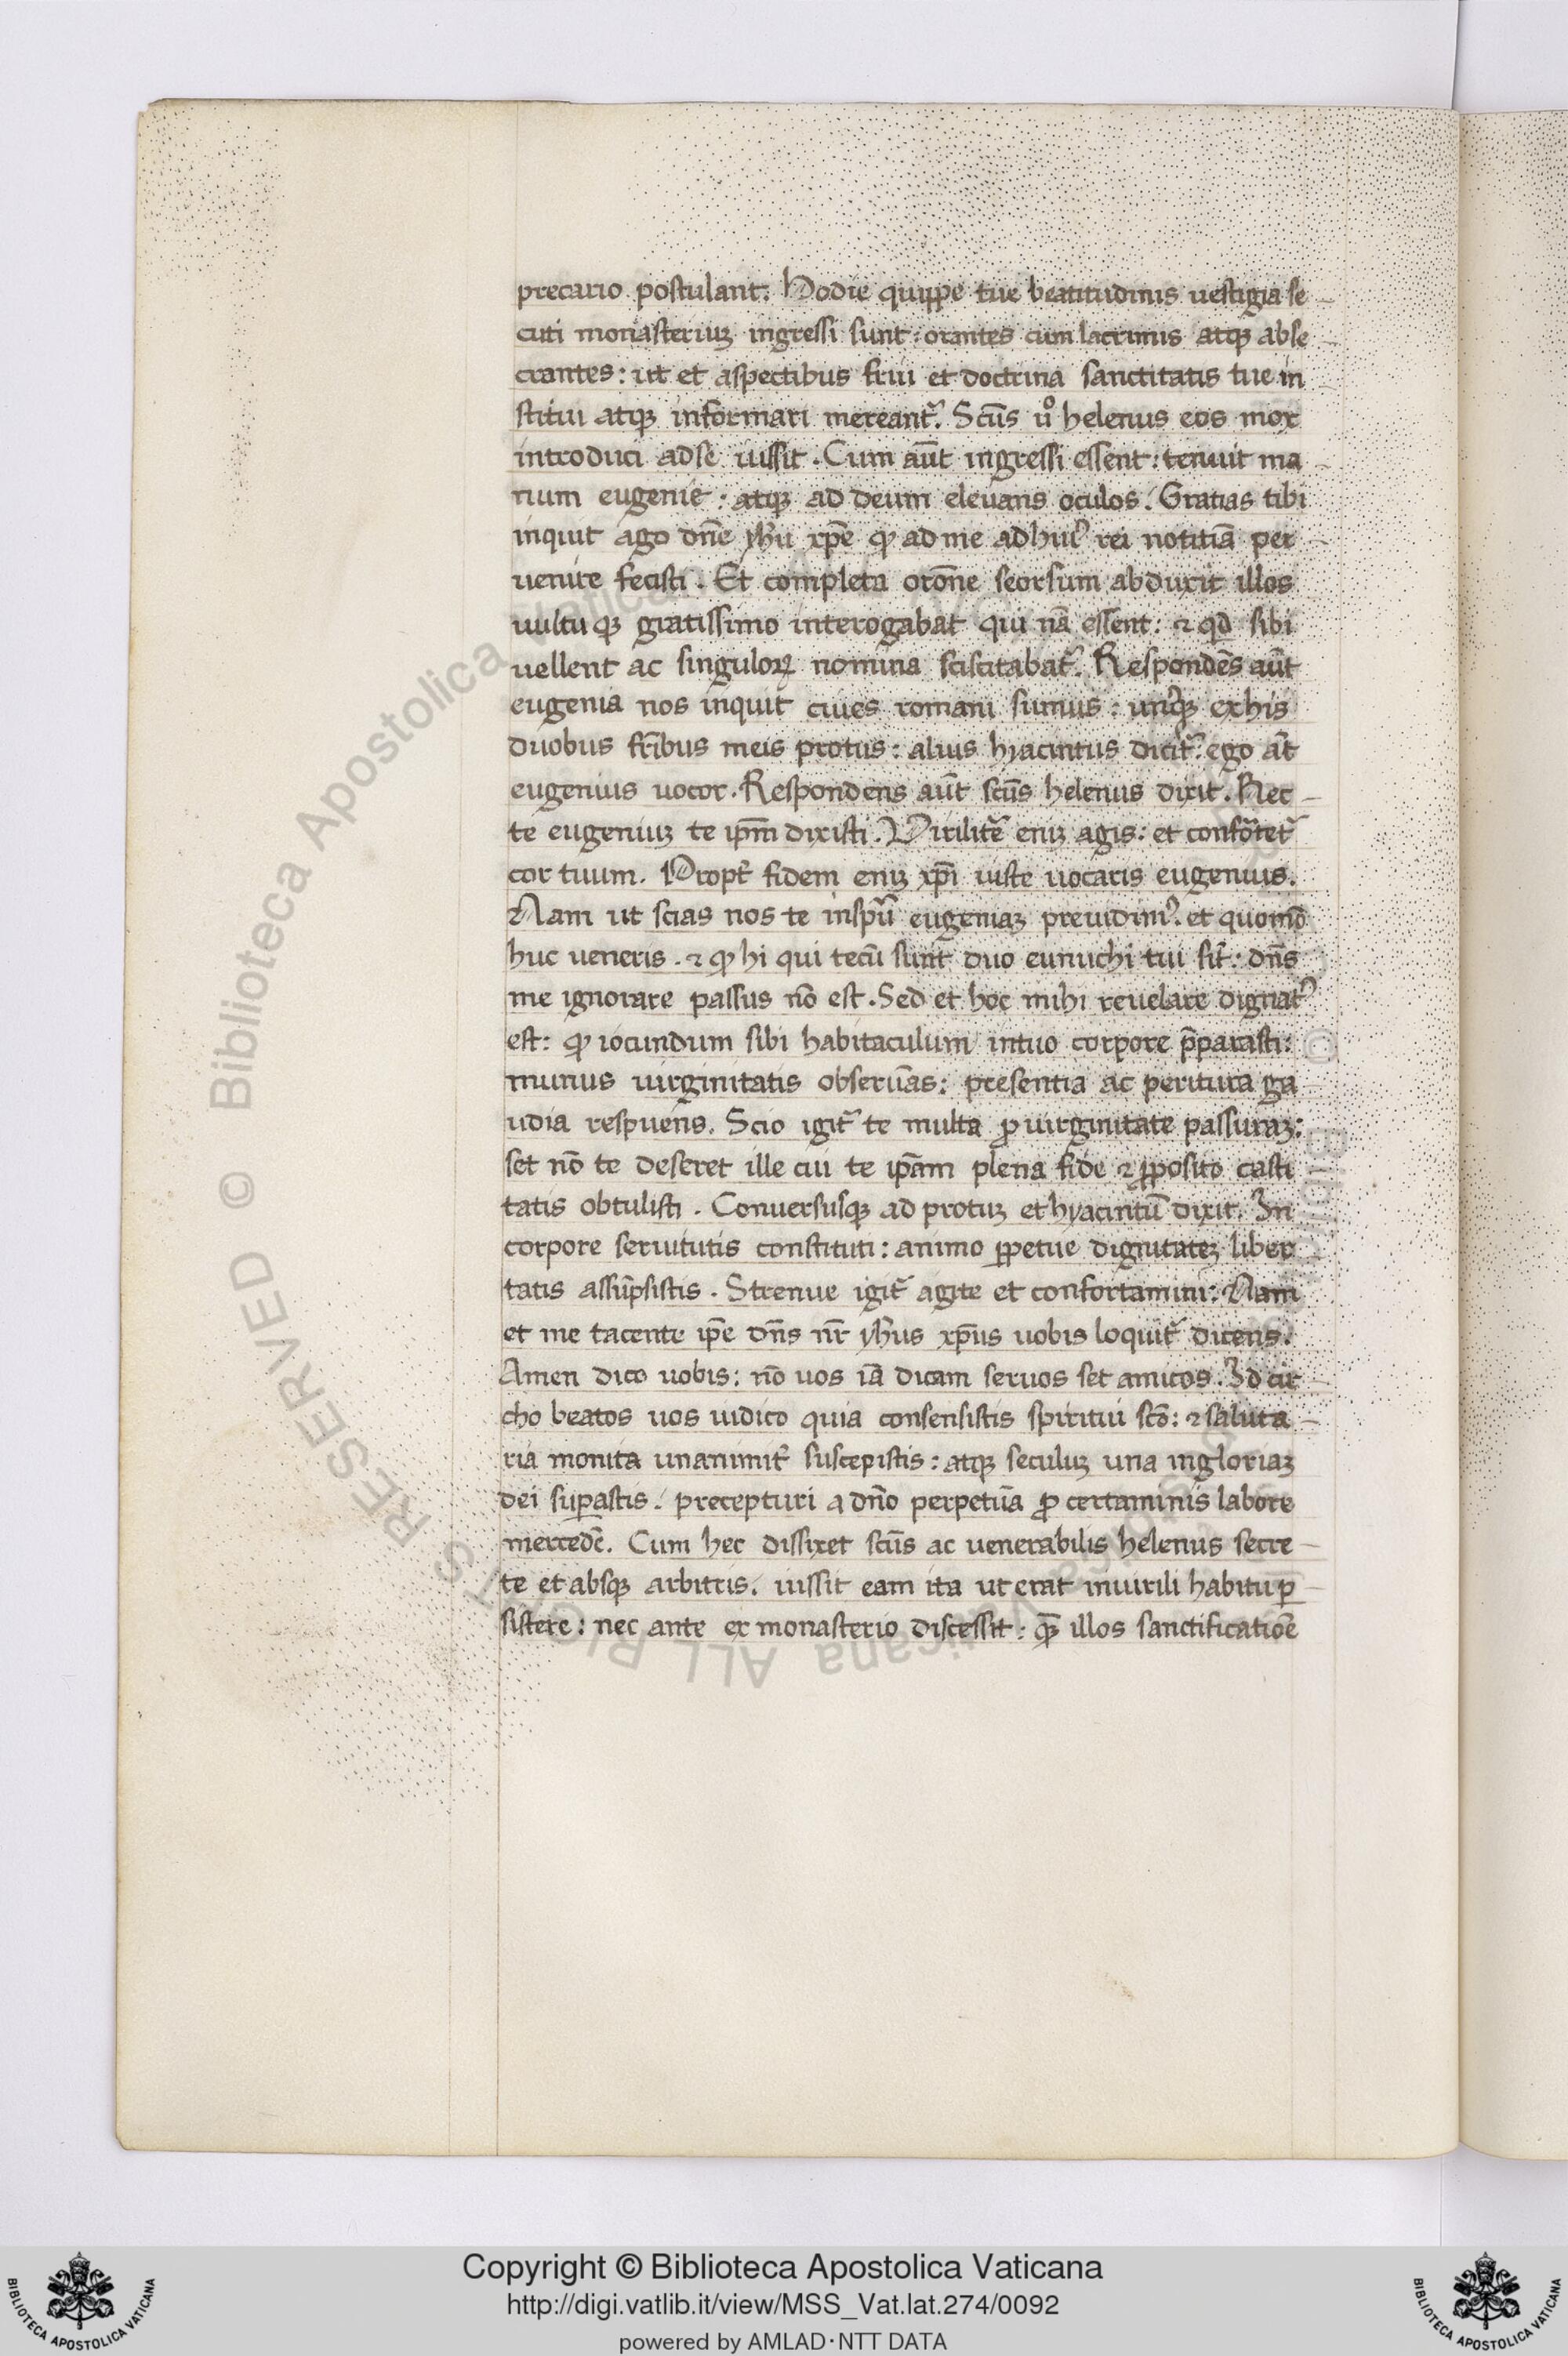 precario postulant. Hodie quippe tue beatitudinis uestigia se-
cuti monasteriuʒ ingressi sunt: orantes cum lacrimis atqʒ obse-
crantes: ut et aspectibus frui et doctrina sanctitatis tue in
stitui atqʒ informari mereant᷑. Scūs uͦ helenus eos mox
introduci adse iussit. Cum aūt ingressi essent: tenuit ma-
num eugenie: atqʒ ad deum eleuans oculos. Gratias tibi
inquit ago dn̄e yhū xp̄e ꝙ ad me adhuiꝰ rei notitiā per-
uenire fecisti. Et completa orōne seorsum abduxit illos
uultuqʒ gratissimo interogabat qui nā essent: ⁊ qd̄ sibi
uellent ac singuloꝝ nomina sciscitabat᷑. Respondēs aūt
eugenia nos inquit ciues romani sumus: unꝰqʒ exhis
duobus fr̄ibus meis protus: alius hyacintus dicit᷑: ego āt
eugenius uocor. Respondens aūt scūs helenus dixit. Rec-
te eugeniuʒ te ip̄m dixisti. Virilit᷑ eniʒ agis: et confōrtet᷑
cor tuum. Propt᷑ fidem eniʒ xp̄i iuste uocaris eugenius.
Nam ut scias nos te inspū eugeniaʒ preuidimꝰ. et quomō
huc ueneris. ⁊ ꝙ hi qui tecū sunt duo eunuchi tui sīt: dn̄s
me ignorare passus nō est. Sed et hoc mihi reuelare dignatꝰ
est: ꝙ iocundum sibi habitaculum intuo corpore p̄parasti:
munus uirginitatis obseruās: presentia ac peritura ga-
udia respuens. Scio igit᷑ te multa ꝓ uirginitate passuraʒ:
set nō te deseret ille cui te ip̄am plena fide ⁊ ꝓposito casti
tatis obtulisti. Conuersusqʒ ad protuʒ et hyacintū dixit. In
corpore seruitutis constituti: animo ꝑpetue dignitateʒ liber
tatis assūpsistis. Strenue igit᷑ agite et confortamini: Nam
et me tacente ip̄e dn̄s nr̄ yhūs xp̄us uobis loquit᷑ dicens.
Amen dico uobis: nō uos iā dicam seruos set amicos. Idcir-
cho beatos uos iudico quia consensistis spiritui scō: ⁊ saluta-
ria monita unanimit᷑ suscepistis: atqʒ seculuʒ una ingloriaʒ
dei suꝑastis. precepturi a dn̄o perpetuā ꝓ certaminis labore
mercedē. Cum hec dissixet scūs ac uenerabilis helenus secre-
te et absqʒ arbitris. iussit eam ita ut erat inuirili habitu ꝑ-
sistere: nec ante ex monasterio discessit: qʒ̄ illos sanctificatiōe
Copyright © Biblioteca Apostolica Vaticana
http://digi.vatlib.it/view/MSS_Vat.lat.274/0092
powered by AMLAD·NTT DATA
BIBLIOTECA APOSTOLICA VATICANA
BIBLIOTECA APOSTOLICA VATICANA
© Biblioteca Apostolica Vaticana ALL RIGHTS RESERVED